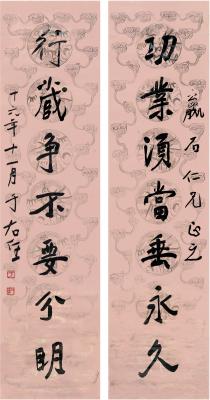 功業須當垂永久
石仁兄正之
行藏争不要分明
十六年十一月于右任